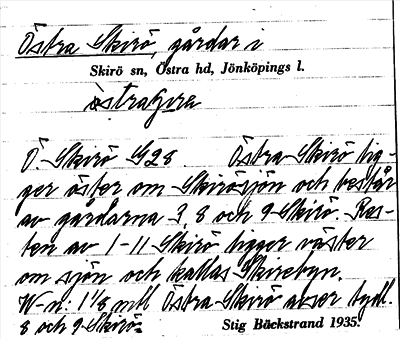 Östra Skirö, gårdar i
Skirö sn, Östra hd, Jönköpings l.
östra
Ö. Skirö G28 Östra Skirö lig-
ger öster om Skirösjön och består
av gårdarna 3, 8 och 9 Skirö. Res-
ten av 1-11 Skirö ligger väster
om sjön och kallas Skirebyn.
W-n: 1 1/8 mtl Östra Skirö avser tydl.
8 och 9 Skirö.
Stig Bäckstrand 1935.